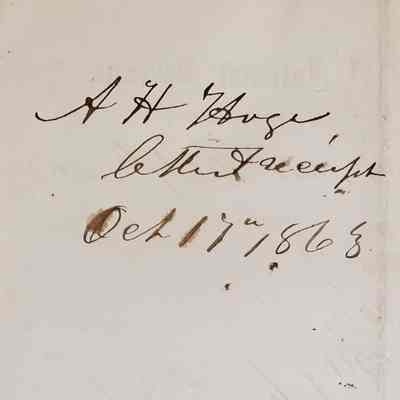 A H Hoge
letter & receipt
Oct 17" 1863